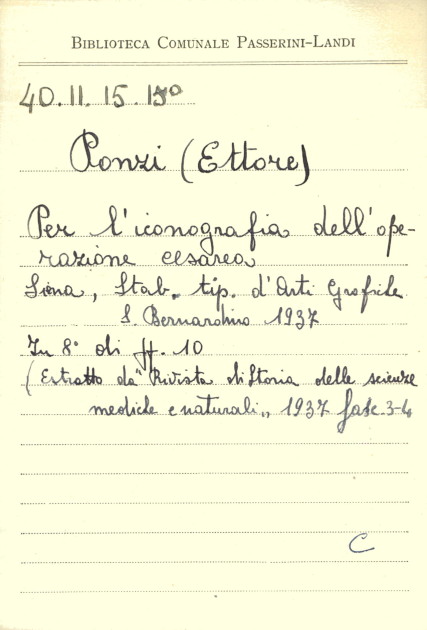 BIBLIOTECA COMUNALE PASSERINI-LANDI
40.II.15.15º
Ponzi (Ettore)
Per l'iconografia dell'ope-
razione cesarea
Siena, Stab. tip. d'Arti Grafiche
S. Bernardino 1937
In 8° di ff. 10
(Estratto da "Rivista di Storia delle scienze
mediche e naturali„ 1937 fasc. 3-4
C